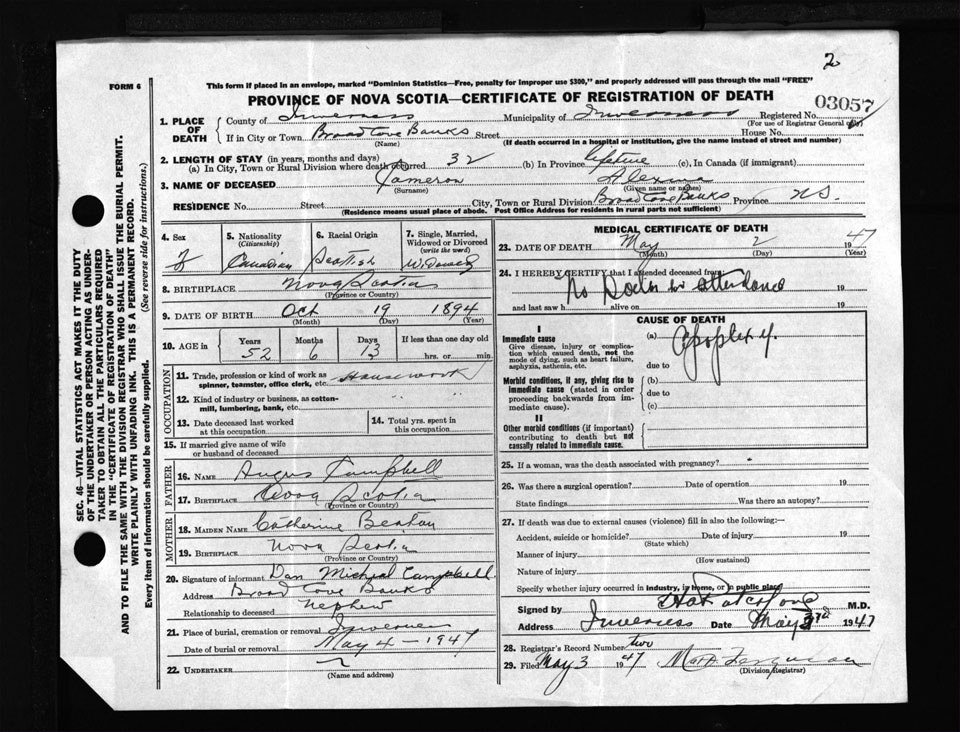 2
FORM 6
This form if placed in an envelope, marked "Dominion Statistics—Free, penalty for improper use $300," and properly addressed will pass through the mail "FREE"
PROVINCE OF NOVA SCOTIA—CERTIFICATE OF REGISTRATION OF DEATH
03057
1. PLACE OF DEATH
County of Inverness Municipality of Inverness Registered No.
(For use of Registrar General only)
If in City or Town Broad Cove Banks Street House No.
(Name) (If death occurred in a hospital or institution, give the name instead of street and number)
2. LENGTH OF STAY (in years, months and days)
(a) In City, Town or Rural Division where death occurred 32 (b) In Province lifetime (c). In Canada (if immigrant)
3. NAME OF DECEASED Cameron Alexina
(Surname) (Given name or names)
RESIDENCE No. Street City, Town or Rural Division Broad Cove Banks Province N.S.
(Residence means usual place of abode. Post Office Address for residents in rural parts not sufficient)
4. Sex f
5. Nationality (Citizenship) Canadian
6. Racial Origin Scottish
7. Single, Married, Widowed or Divorced (write the word) Widowed
8. BIRTHPLACE Nova Scotia
(Province or Country)
9. DATE OF BIRTH Oct 19 1894
(Month) (Day) (Year)
10. AGE in Years 52 Months 6 Days 13 If less than one day old hrs. or min.
OCCUPATION
11. Trade, profession or kind of work as spinner, teamster, office clerk, etc. Housework
12. Kind of industry or business, as cotton-mill, lumbering, bank, etc.
13. Date deceased last worked at this occupation
14. Total yrs. spent in this occupation
15. If married give name of wife or husband of deceased
FATHER
16. NAME Angus Campbell
17. BIRTHPLACE Nova Scotia
(Province or Country)
MOTHER
18. MAIDEN NAME Catherine Beaton
19. BIRTHPLACE Nova Scotia
(Province or Country)
20. Signature of informant Dan Micheal Campbell
Address Broad Cove Banks
Relationship to deceased nephew
21. Place of burial, cremation or removal Inverness
Date of burial or removal May 4 - 1947
22. UNDERTAKER
(Name and address)
MEDICAL CERTIFICATE OF DEATH
23. DATE OF DEATH May 2 1947
(Month) (Day) (Year)
24. I HEREBY CERTIFY that I attended deceased from 19
No Doctor in attendance
and last saw h alive on 19
CAUSE OF DEATH
I
Immediate cause
Give disease, injury or complication which caused death, not the mode of dying, such as heart failure, asphyxia, asthenia, etc.
(a) Apoplexy.
due to
Morbid conditions, if any, giving rise to immediate cause (stated in order proceeding backwards from immediate cause).
(b)
due to
(c)
II
Other morbid conditions (if important) contributing to death but not causally related to immediate cause.
25. If a woman, was the death associated with pregnancy?
26. Was there a surgical operation? Date of operation 19
State findings Was there an autopsy?
27. If death was due to external causes (violence) fill in also the following:—
Accident, suicide or homicide? Date of injury 19
(State which)
Manner of injury
(How sustained)
Nature of injury
Specify whether injury occurred in industry, in home, or in public place
Signed by M.D.
Address Inverness Date May 3rd 1947
28. Registrar's Record Number two
29. Filed May 3 1947
(Division Registrar)
SEC. 46—VITAL STATISTICS ACT MAKES IT THE DUTY
OF THE UNDERTAKER OR PERSON ACTING AS UNDER-
TAKER TO OBTAIN ALL THE PARTICULARS REQUIRED
IN THE "CERTIFICATE OF REGISTRATION OF DEATH"
AND TO FILE THE SAME WITH THE DIVISION REGISTRAR WHO SHALL ISSUE THE BURIAL PERMIT.
WRITE PLAINLY WITH UNFADING INK. THIS IS A PERMANENT RECORD.
Every item of information should be carefully supplied. (See reverse side for instructions.)